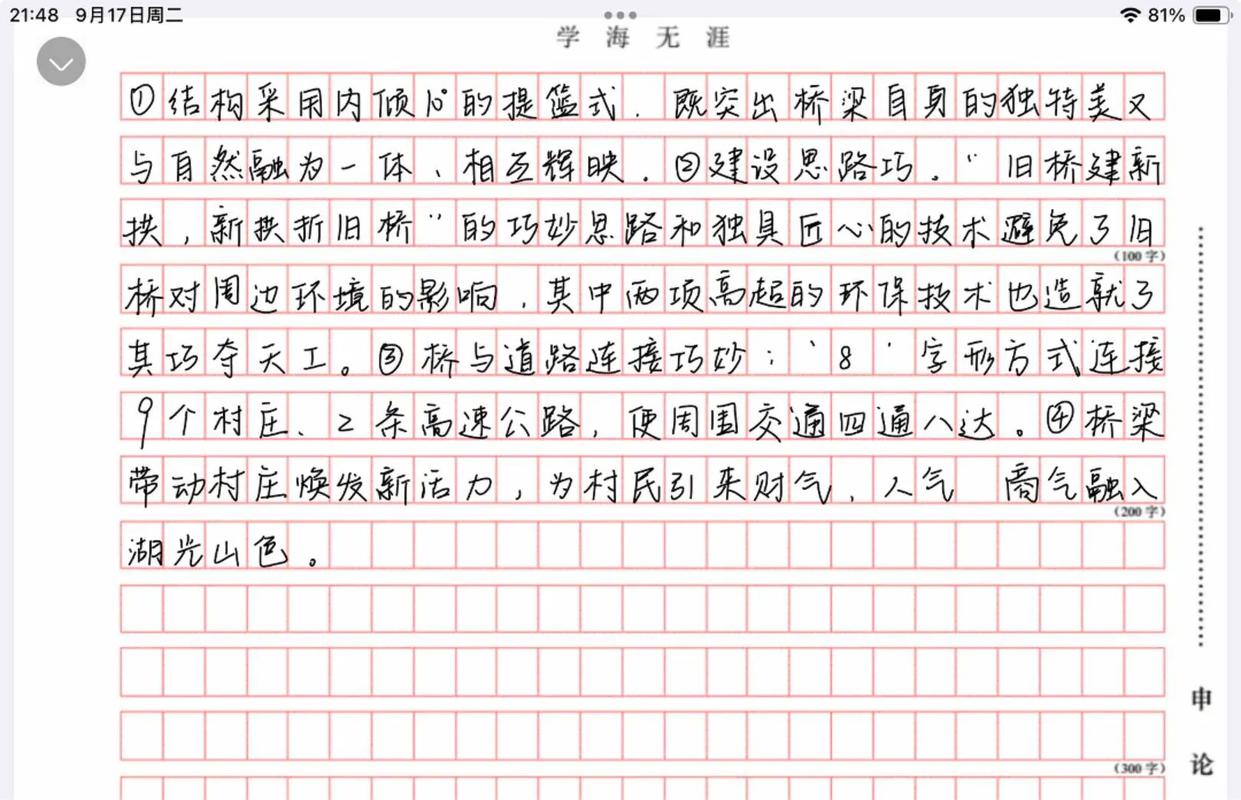 21:48 9月17日周二
81%
学海无涯
①结构采用内倾10°的提篮式．既突出桥梁自身的独特美又
与自然融为一体、相互辉映．②建设思路巧．“旧桥建新
拱，新拱折旧桥”的巧妙思路和独具匠心的技术避免了旧
(100字)
桥对周边环境的影响，其中两项高超的环保技术也造就了
其巧夺天工。③桥与道路连接巧妙：‘8’字形方式连接
9个村庄、2条高速公路，使周围交通四通八达。④桥梁
带动村庄焕发新活力，为村民引来财气、人气 商气融入
(200字)
湖光山色。
(300字)
申论